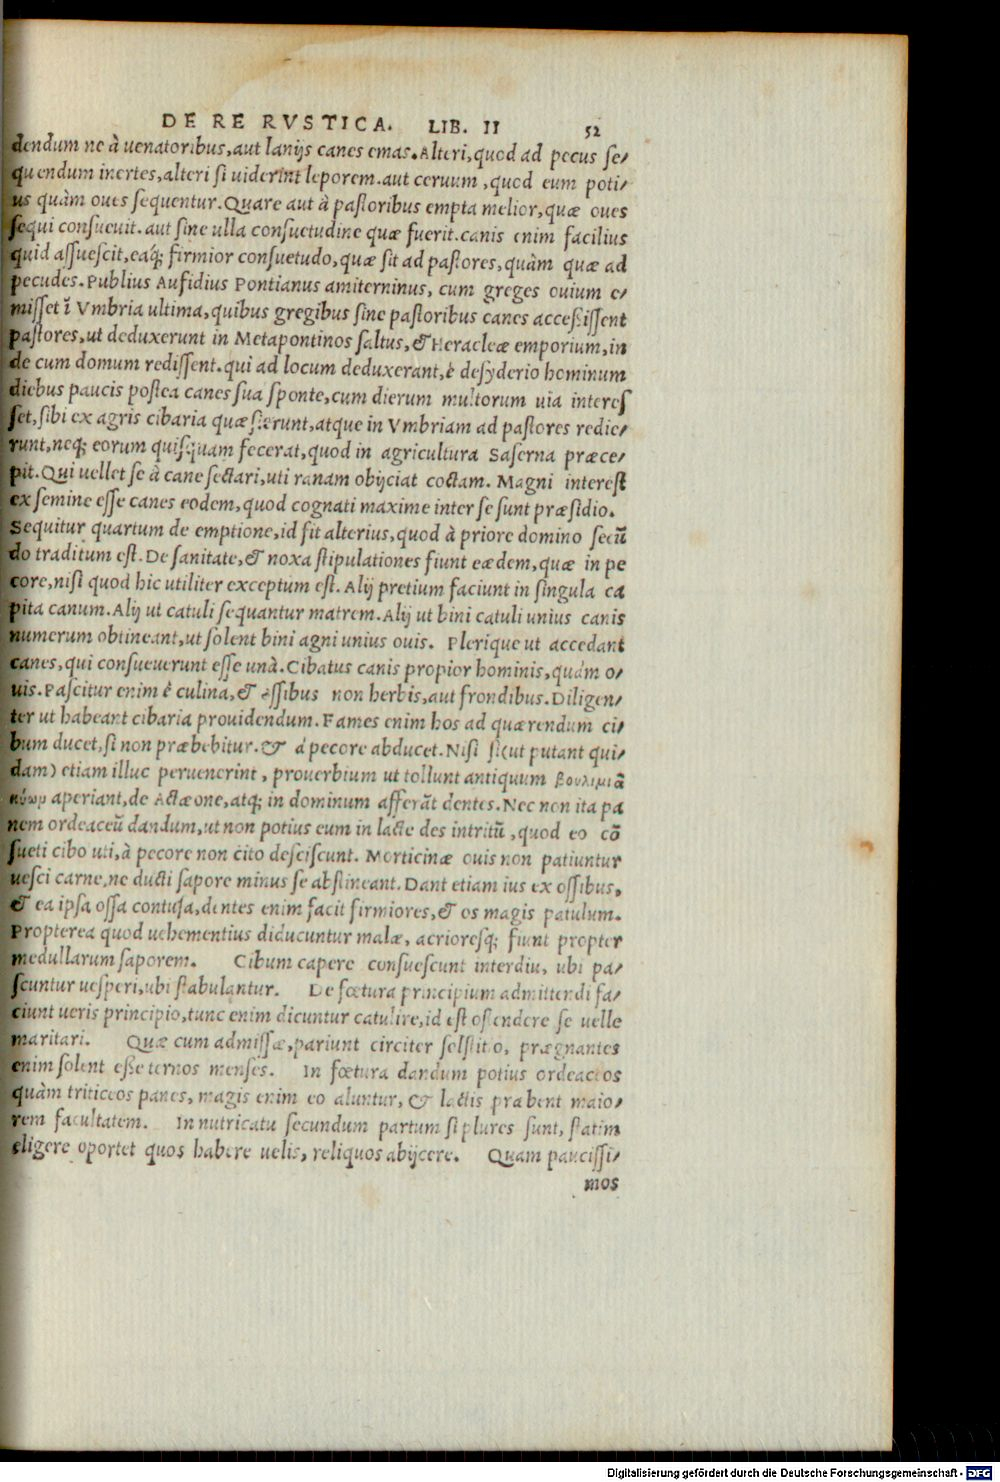 DE RE RVSTICA. LIB. II 52
dendum ne à uenatoribus, aut lanijs canes emas. Alteri, quod ad pecus se/
quendum inertes, alteri si uiderint leporem. aut ceruum, quod eum poti/
us quàm oues sequentur. Quare aut à pastoribus empta melior, quæ oues
sequi consueuit. aut sine ulla consuetudine quæ fuerit. canis enim facilius
quid assuescit, eaq; firmior consuetudo, quæ sit ad pastores, quàm quæ ad
pecudes. Publius Aufidius Pontianus amiterninus, cum greges ouium e/
misset ī Vmbria ultima, quibus gregibus sine pastoribus canes accessissent
pastores, ut deduxerunt in Metapontinos saltus, & Heracleæ emporium, in
de cum domum redissent. qui ad locum deduxerant, è desyderio hominum
diebus paucis postea canes sua sponte, cum dierum multorum uia interes
set, sibi ex agris cibaria quæsierunt, atque in Vmbriam ad pastores redie/
runt, neq; eorum quisquam fecerat, quod in agricultura Saserna præce/
pit. Qui uellet se à cane sectari, uti ranam obijciat coctam. Magni interest
ex semine esse canes eodem, quod cognati maxime inter se sunt præsidio.
Sequitur quartum de emptione, id fit alterius, quod à priore domino secū
do traditum est. De sanitate, & noxa stipulationes fiunt eædem, quæ in pe
core, nisi quod hic utiliter exceptum est. Alij pretium faciunt in singula ca
pita canum. Alij ut catuli sequantur matrem. Alij ut bini catuli unius canis
numerum obtineant, ut solent bini agni unius ouis. Plerique ut accedant
canes, qui consueuerunt esse unà. Cibatus canis propior hominis, quàm o/
uis. Pascitur enim è culina, & ossibus non herbis, aut frondibus. Diligen/
ter ut habeant cibaria prouidendum. Fames enim hos ad quærendum ci/
bum ducet, si non præbebitur. & à pecore abducet. Nisi si (ut putant qui/
dam) etiam illuc peruenerint, prouerbium ut tollunt antiquum βουλιμιᾶ
κύωρ aperiant, de Actæone, atq; in dominum afferāt dentes. Nec non ita pa
nem ordeaceū dandum, ut non potius eum in lacte des intritū, quod eo cō
sueti cibo uti, à pecore non cito desciscunt. Morticinæ ouis non patiuntur
uesci carne, ne ducti sapore minus se abstineant. Dant etiam ius ex ossibus,
& ea ipsa ossa contusa, dentes enim facit firmiores, & os magis patulum.
Propterea quod uehementius diducuntur malæ, acrioresq; fiunt propter
medullarum saporem. Cibum capere consuescunt interdiu, ubi pa/
scuntur uesperi, ubi stabulantur. De fœtura principium admittendi fa/
ciunt ueris principio, tunc enim dicuntur catulire, id est ostendere se uelle
maritari. Quæ cum admissæ, pariunt circiter solstitio, prægnantes
enim solent esse ternos menses. In fœtura dandum potius ordeaceos
quàm triticeos panes, magis enim eo aluntur, & lactis præbent maio/
rem facultatem. In nutricatu secundum partum si plures sunt, statim
eligere oportet quos habere uelis, reliquos abijcere. Quam paucissi/
mos
Digitalisierung gefördert durch die Deutsche Forschungsgemeinschaft - DFG